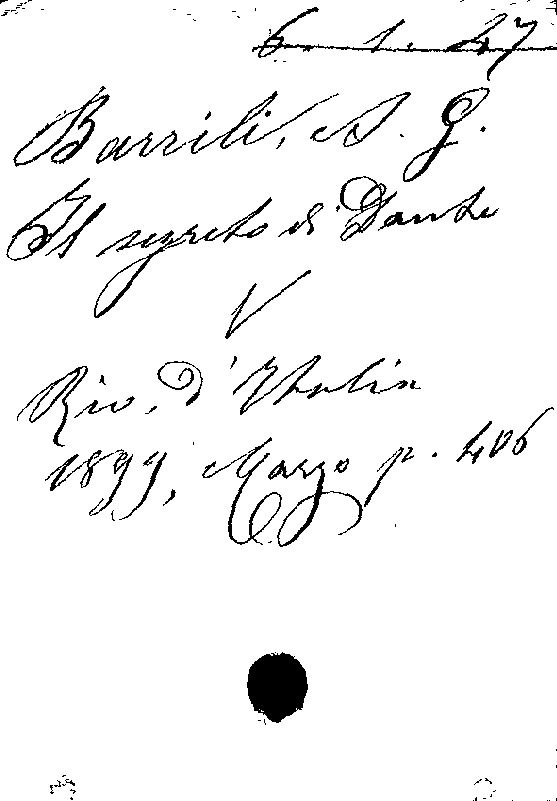 6. 1. 47
Barrili, A. G.
Il segreto di Dante
V
Riv. d'Italia
1899, Marzo p. 406